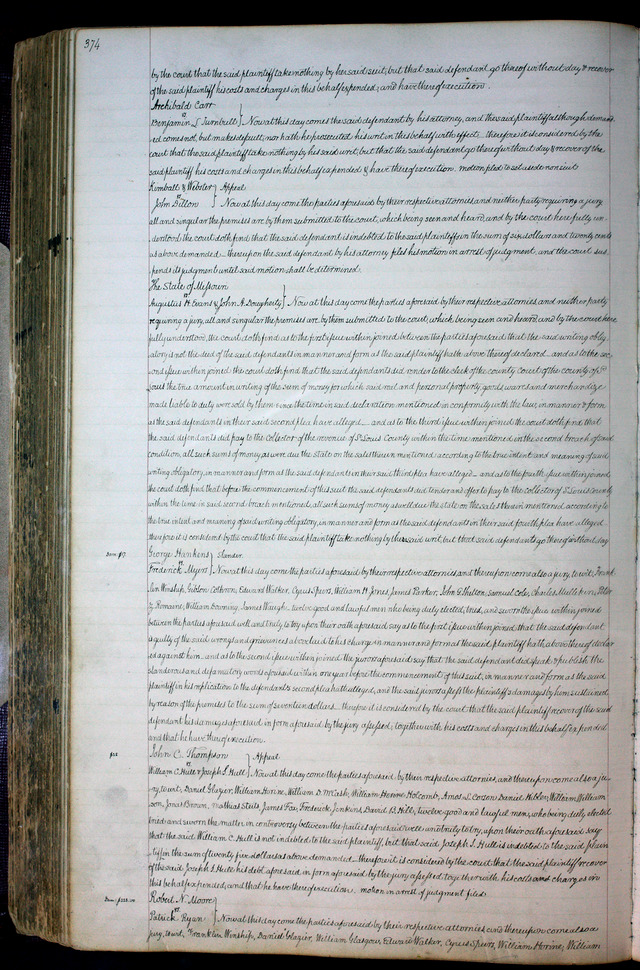 374
by the court that the said plaintiff take nothing by her said suit; but that said defendant go thereof without day & recover
of the said plaintiff his costs and charges in this behalf expended; and have thereof execution.
Archibald Carr
vs
Benjamin L Turnbull } Now at this day comes the said defendant by his attorney, and the said plaintiff although demand
ed comes not, but makes default, nor hath he prosecuted his writ in this behalf with effect. therefore it is considered by the
court that the said plaintiff take nothing by his said writ, but that the said defendant go thereof without day & recover of the
said plaintiff his costs and charges in this behalf expended & have thereof execution. motion filed to set aside nonsuit
Kimball & Webster } Appeal
vs
John Dillon } Now at this day come the parties aforesaid by their respective attornies and neither party requiring a jury
all and singular the premises are by them submitted to the court, which being seen and heard, and by the court here fully un
derstood the court doth find that the said defendant is indebted to the said plaintiffs in the sum of six dollars and twenty cents
as above demanded. thereupon the said defendant by his attorney files his motion in arrest of judgment, and the court sus
pends its judgment until said motion shall be determined.
The State of Missouri
vs
Augustus H. Evans & John A. Dougherty } Now at this day come the parties aforesaid by their respective attornies and neither party
requiring a jury, all and singular the premises are by them submitted to the court, which being seen and heard and by the court here
fully understood, the court doth find as to the first issue within joined between the parties aforesaid that the said writing oblig
atory is not the deed of the said defendants in manner and form as the said plaintiff hath above thereof declared. and as to the sec
ond issue within joined the court doth find that the said defendants did render to the clerk of the county court of the county of St
Louis the true amount in writing of the sum of money for which said real and personal property, goods wares and merchandize
made liable to duty were sold by them since the time in said declaration mentioned in conformity with the law, in manner & form
as the said defendants in their said second plea have alleged. and as to the third issue within joined the court doth find that
the said defendants did pay to the collector of the revenue of St Louis County within the time mentioned in the second breach of said
condition, all such sums of money as were due the state on the sales therein mentioned according to the true intent and meaning of said
writing obligatory, in manner and form as the said defendants in their said third plea have alleged. and as to the fourth issue within joined
the court doth find that before the commencement of this suit the said defendants did tender and offer to pay to the collector of St Louis County
within the time in said second breach mentioned, all such sums of money as well due the state on the sales therein mentioned according to
the true intent and meaning of said writing obligatory, in manner and form as the said defendants in their said fourth plea have alleged.
therefore it is considered by the court that the said plaintiff take nothing by their said writ, but that said defendants go thereof without day
Dam: $17 George Hankens } slander
vs
Frederick Myers } Now at this day come the parties aforesaid by their respective attornies and thereupon come also a jury, to wit, Frank
lin Winship, Gideon Colburn, Edward Walker, Cyrus Spurs, William H. Jones, James Parker, John G. Shelton, Samuel Cole, Charles Mulliken, Peter
G. Romaine, William Downing, James Waugh, twelve good and lawful men who being duly elected, tried, and sworn the issues within joined
between the parties aforesaid well and truly to try upon their oath aforesaid say as to the first issue within joined that the said defendant
is guilty of the said wrongs and grievances above laid to his charge in manner and form as the said plaintiff hath above thereof declar
ed against him. and as to the second issue within joined the jurors aforesaid say that the said defendant did speak & publish the
slanderous and defamatory words aforesaid within one year before the commencement of this suit, in manner and form as the said
plaintiff in his replication to the defendants second plea hath alleged, and the said jurors assess the plaintiffs damages by him sustained
by reason of the premises to the sum of seventeen dollars. therefore it is considered by the court that the said plaintiff recover of the said
defendant his damages aforesaid in form aforesaid by the jury assessed; together with his costs and charges in this behalf expended
and that he have thereof execution.
$25 John C. Thompson } Appeal
vs
William C. Hull & Joseph S. Hull } Now at this day come the parties aforesaid, by their respective attornies, and thereupon come also a ju
ry, to wit, Daniel Glazier, William Horine, William D. McCash, William Horine, Holcomb, Amos L. Corson Daniel Hibler, William William
son, Jonas Brown, Mathias Steits, James Fox, Frederick Jenkins, David B. Hill, twelve good and lawful men, who being duly elected
tried and sworn the matter in controversy between the parties aforesaid well and truly to try, upon their oath aforesaid say
that the said William C. Hull is not indebted to the said plaintiff, but that said Joseph S. Hull is indebted to the said plain
tiff in the sum of twenty five dollars as above demanded. therefore it is considered by the court that the said plaintiff recover
of the said Joseph S. Hull his debt aforesaid in form aforesaid by the jury assessed together with his costs and charges in
this behalf expended, and that he have thereof execution. motion in arrest of judgment filed.
Robert N. Moore }
vs
Patrick Ryan } Now at this day come the parties aforesaid by their respective attornies and thereupon come also a
jury, to wit, Franklin Winship, Daniel Glazier, William Glasgow, Edward Walker, Cyrus Spurs, William Horine, William